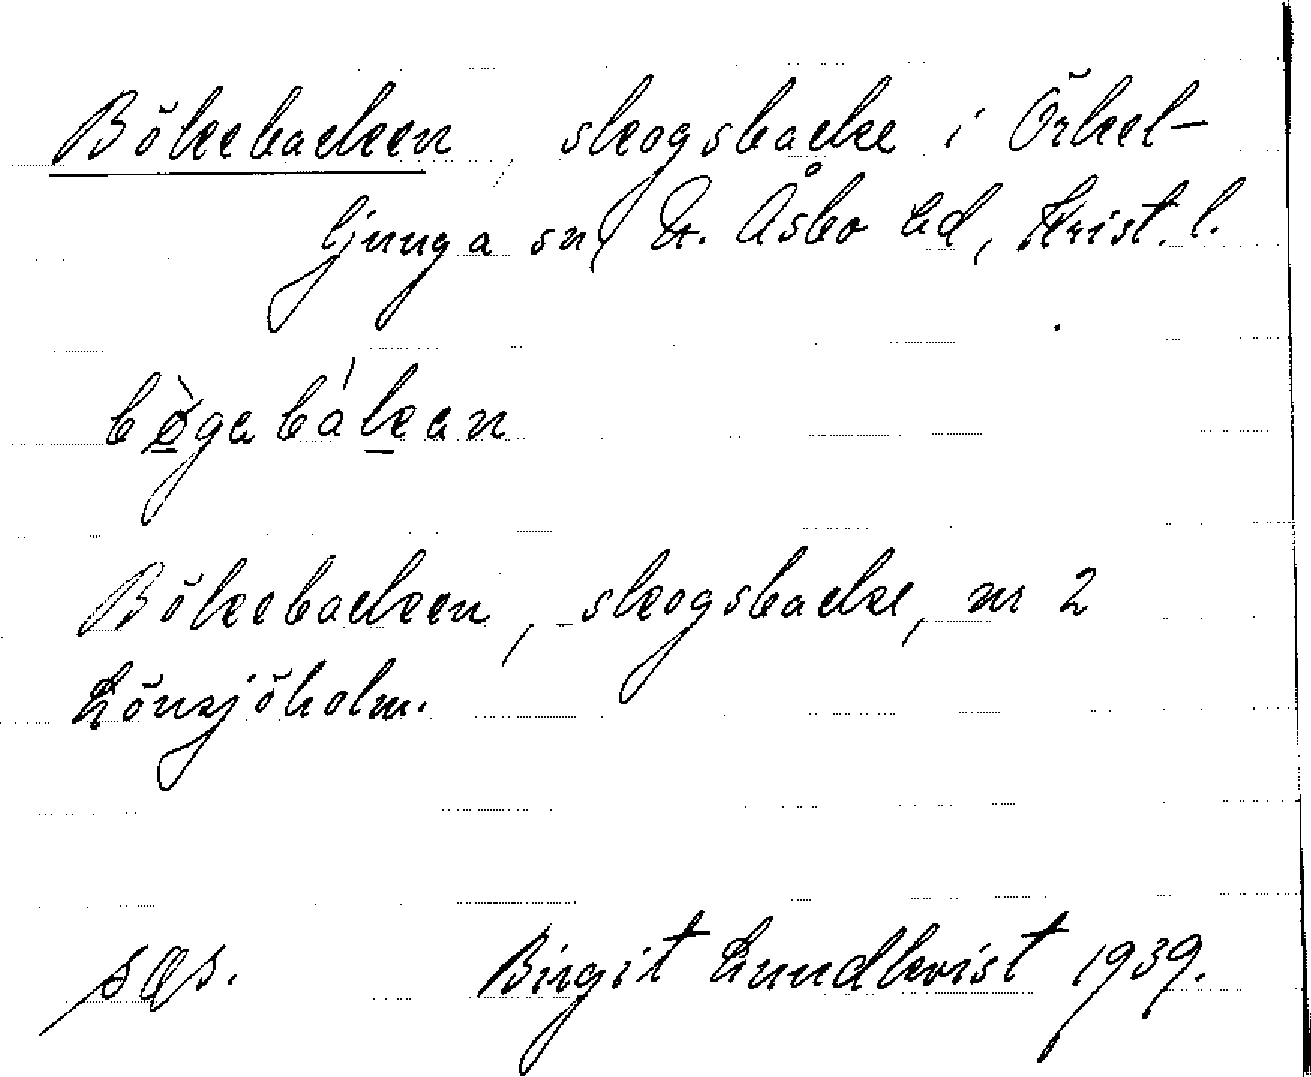 Bökebacken, skogsbacke i Örkel-
ljunga sn, N. Åsbo hd, Krist. l.
bø̀gabákan
Bökebacken, skogsbacke, nr 2
Lönsjöholm.
Birgit Lundkvist 1939.